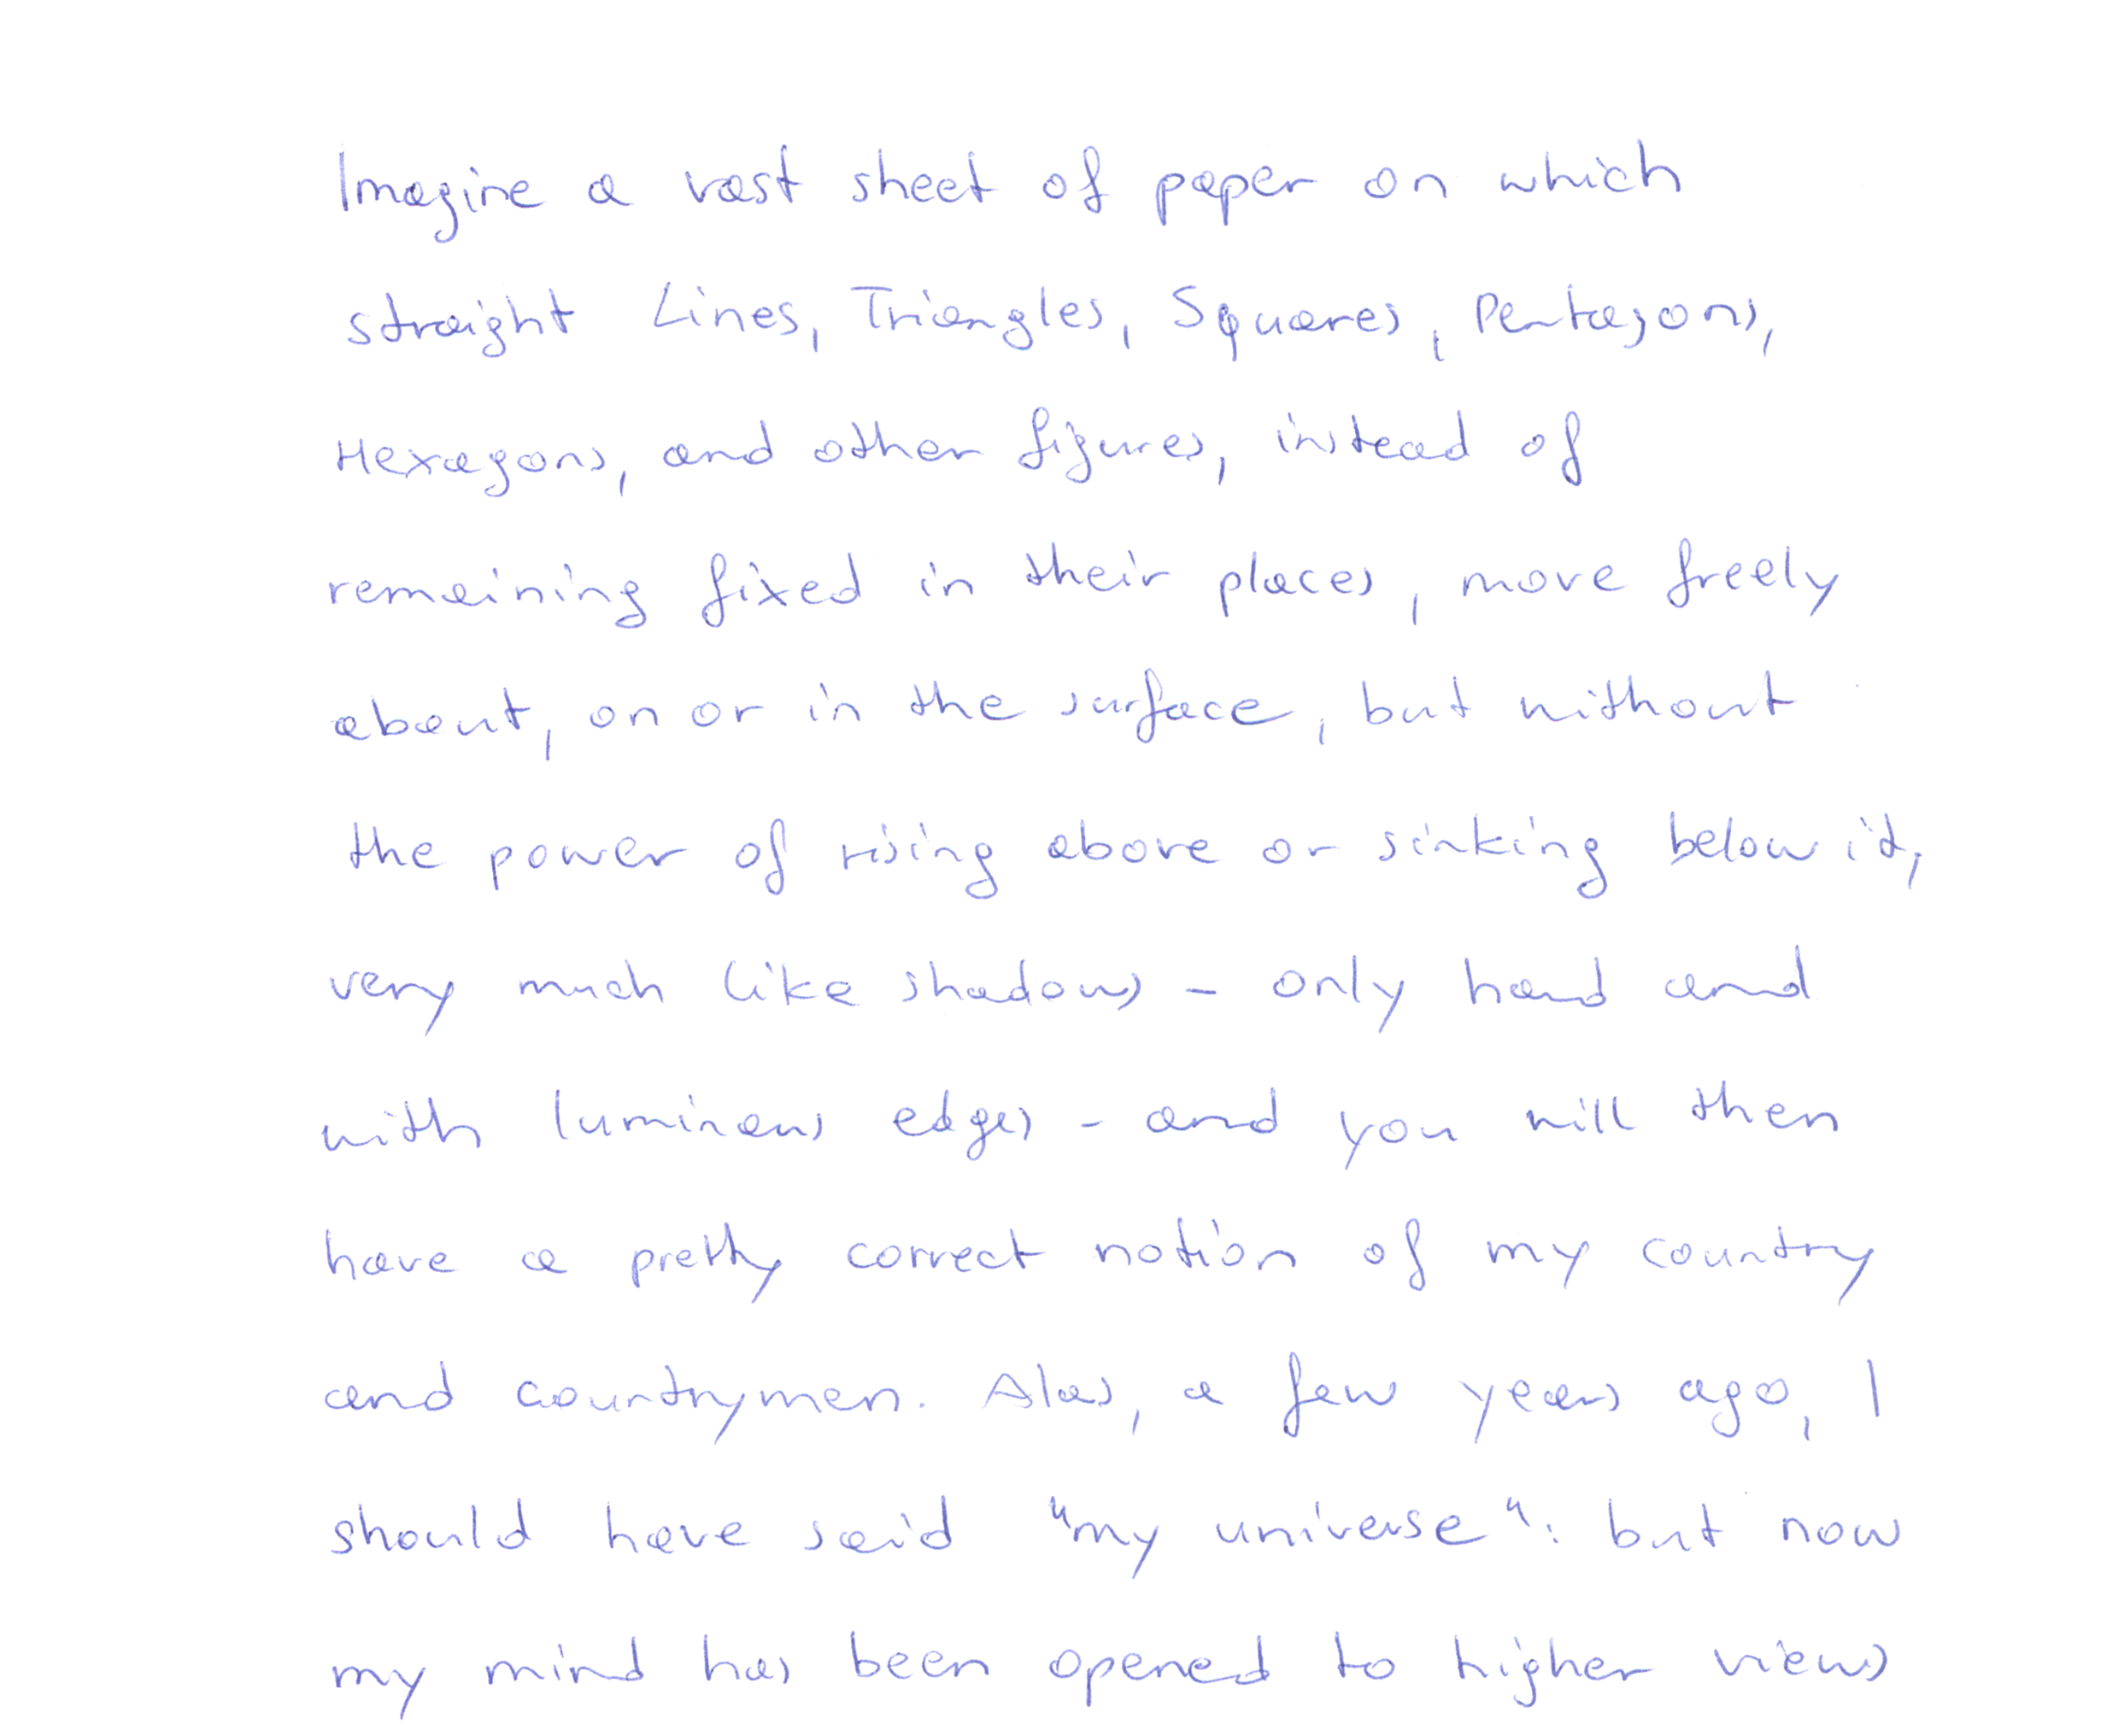 Imagine a vast sheet of paper on which
straight Lines, Triangles, Squares, Pentagons,
Hexagons, and other figures, instead of
remaining fixed in their places, move freely
about, on or in the surface, but without
the power of rising above or sinking below it,
very much like shadows - only hard and
with luminous edges - and you will then
have a pretty correct notion of my country
and countrymen. Alas, a few years ago, I
should have said "my universe": but now
my mind has been opened to higher views